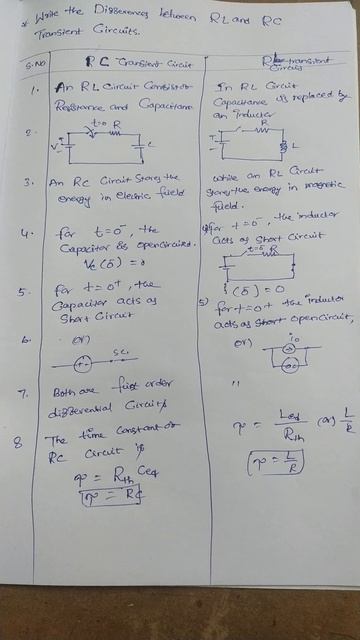 * Write the Differences between RL and RC
Transient Circuits.
S.No
RC Transient Circuit
RL transient
Circuit
1. An RL Circuit Consist of
Resistance and Capacitance
In RL Circuit
Capacitance is replaced by
an inductor
2.
t=0 R
V
C
R
L
3. An RC Circuit Stores the
energy in electric field
while an RL Circuit
stores the energy in magnetic
field.
4. for t=0⁻, the
Capacitor is opencircuited.
Vc(0⁻) = 0
for t=0⁻, the inductor
acts as Short Circuit
t=0 R
i(0⁻) = 0
5. for t=0⁺, the
Capacitor acts as
Short Circuit
5) for t=0+ the inductor
acts as Short Open Circuit,
6. or)
S.C
or) i0
7. Both are first order
differential Circuits
"
8 The time constant of
RC Circuit is
τ = Rth Ceq
τ = RC
τ = Leq/Rth (or) L/R
τ = L/R